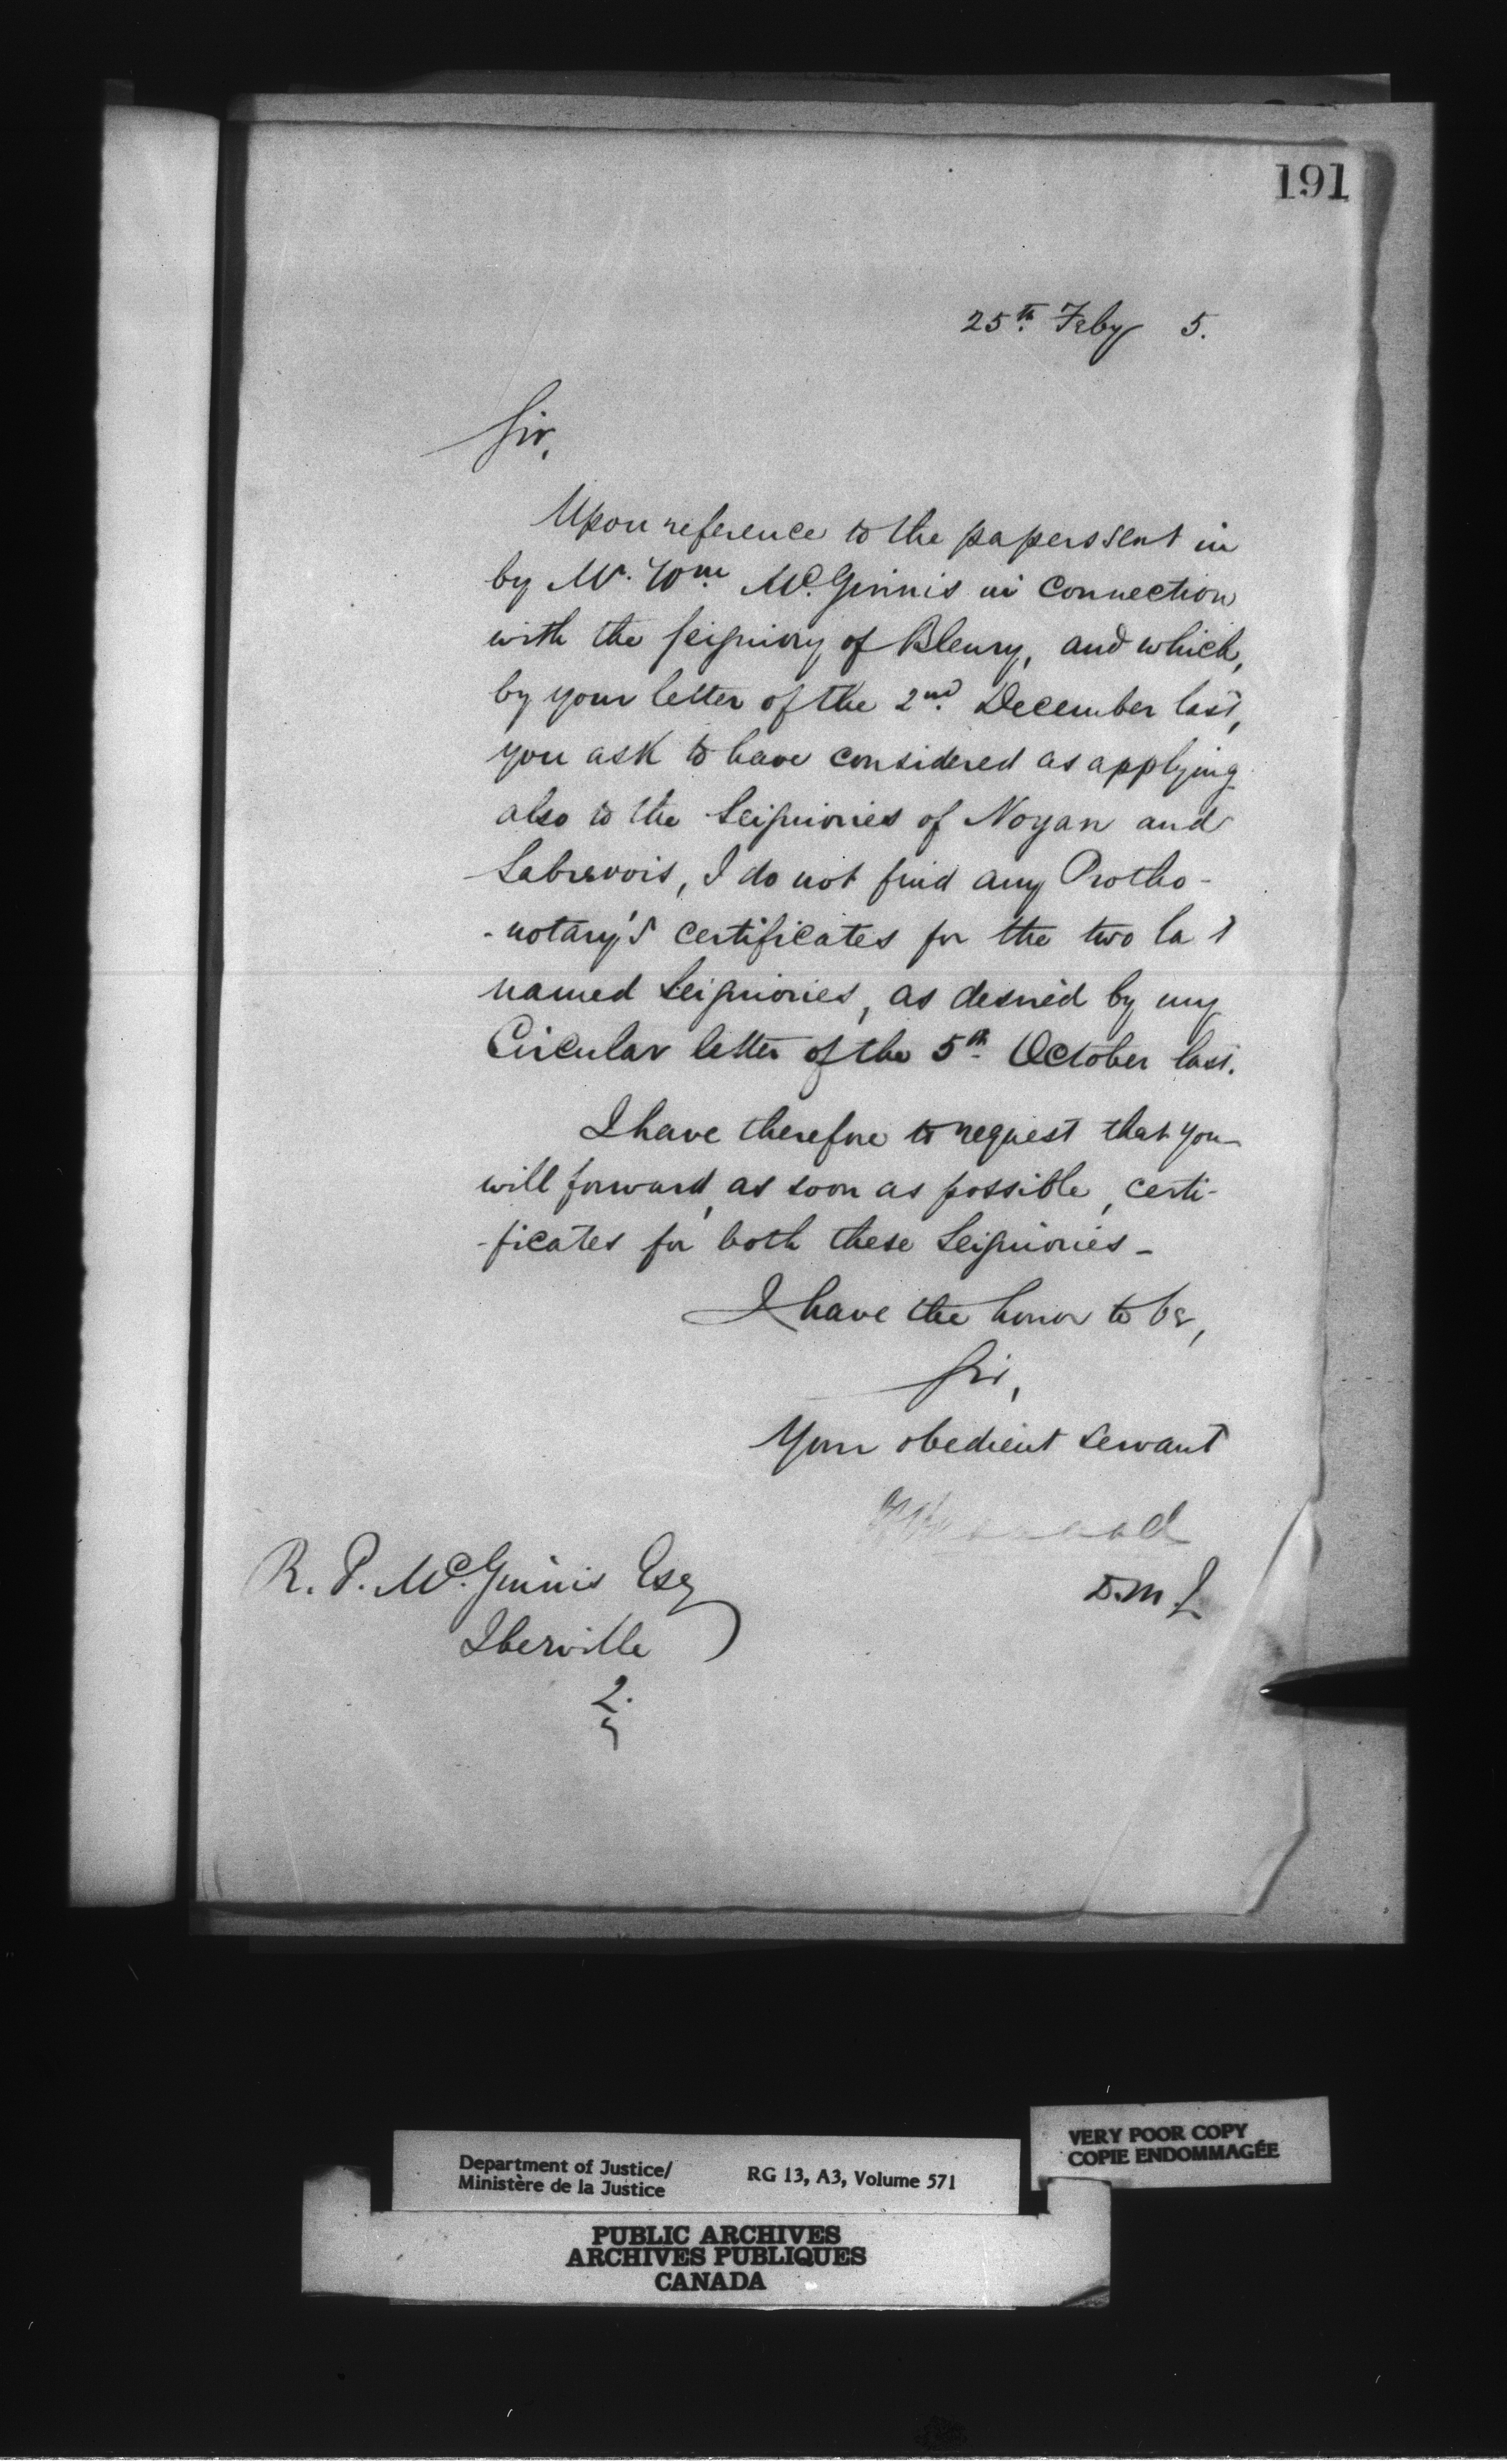 191
25th. Feby 5.
Sir,
Upon reference to the papers sent in
by Mr. Wm. McGinnis in connection
with the Seigniory of Bleury, and which,
by your letter of the 2nd. December last,
you ask to have considered as applying
also to the Seigniories of Noyan and
Sabrevois, I do not find any Protho-
-notary's certificates for the two la t
named Seigniories, as desired by my
Circular letter of the 5th. October last.
I have therefore to request that you
will forward, as soon as possible, certi-
-ficates for both these Seigniories -
I have the honor to be,
Sir,
Your obedient servant
D.M.J.
R. P. McGinnis Esq
Iberville
2.
Department of Justice/
Ministère de la Justice
RG 13, A3, Volume 571
VERY POOR COPY
COPIE ENDOMMAGÉE
PUBLIC ARCHIVES
ARCHIVES PUBLIQUES
CANADA